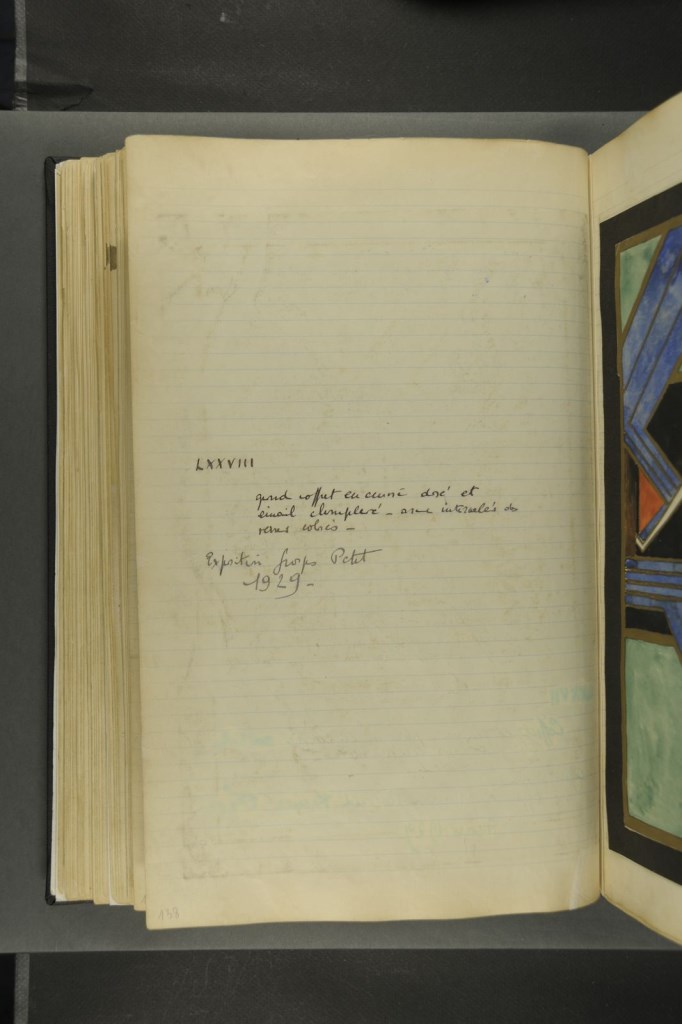 LXXVIII
grand coffret en cuivre doré et
émail champlevé - avec intercalés de
verres colorés -
Exposition Georges Petit
1929 -
137